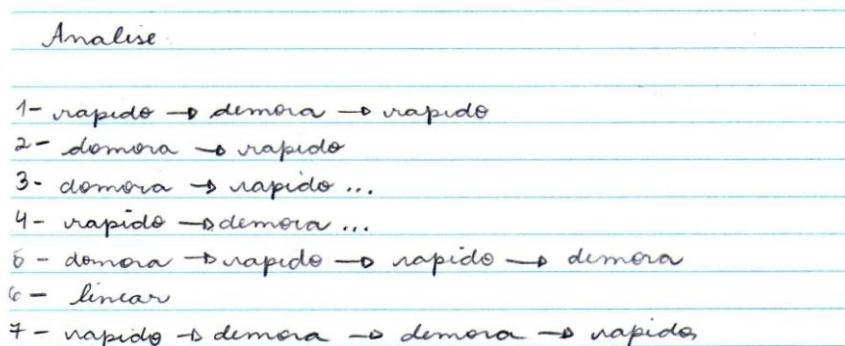 Analise
1- rapido → demora → rapido
2- domora → rapido
3- domora → rapido ...
4- rapido → demora ...
5- domora → rapido → rapido → demora
6- linear
7- rapido → demora → demora → rapido